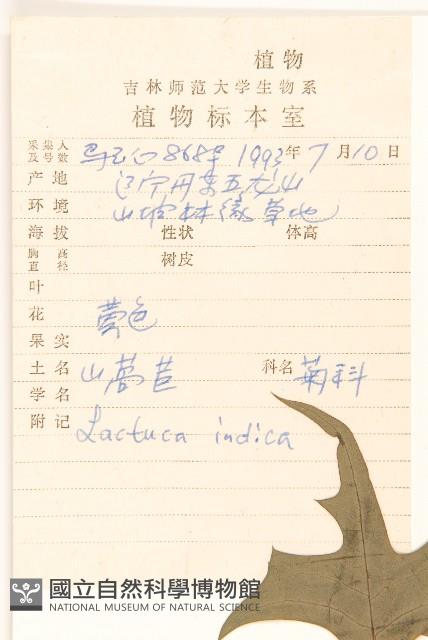 植物
吉林师范大学生物系
植物标本室
采集人及号数 8685 1993年7月10日
产地 辽宁丹东五龙山
环境 山坡林缘草地
海拔 性状 体高
胸高直径 树皮
叶
花 黄色
果实
土名 山莴苣 科名 菊科
学名
附记 Lactuca indica
國立自然科學博物館
NATIONAL MUSEUM OF NATURAL SCIENCE